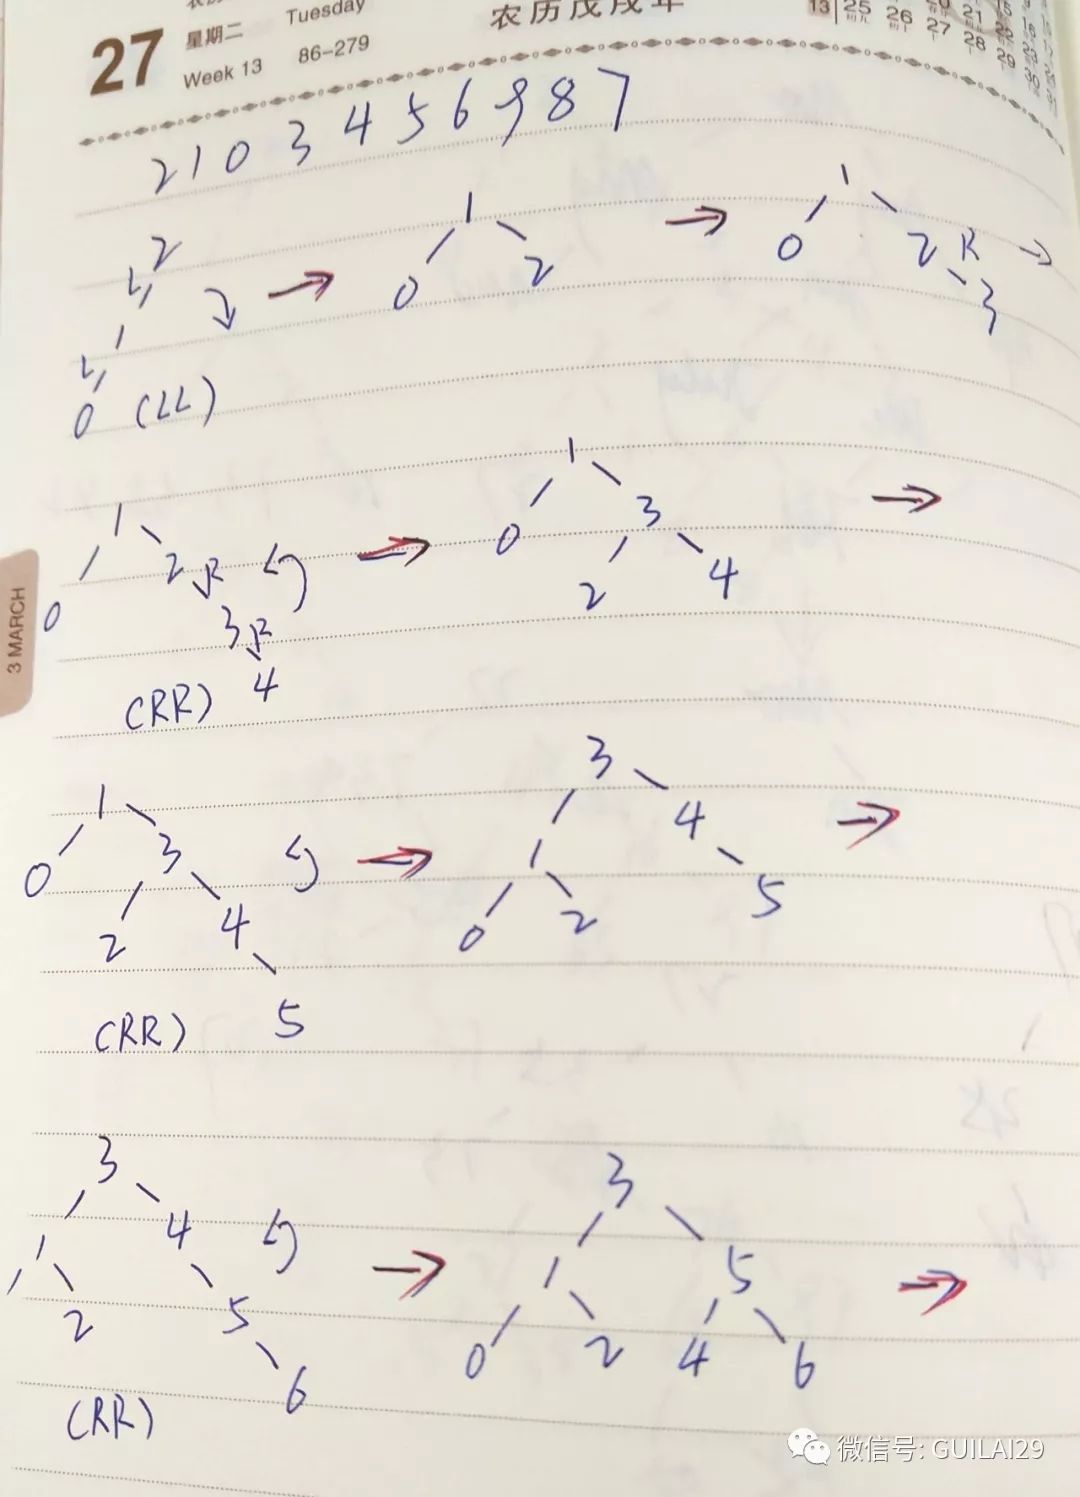 27 星期二 Tuesday
Week 13 86-279
农历戊戌年
13 25 26 27 28 29
2 1 0 3 4 5 6 9 8 7
2 1 1
L 0 2 0 2 R
1 3
L
0 (LL)
1 1
0 2 R 0 3
3 R 2 4
(RR) 4
1 3
0 3 1 4
2 4 0 2 5
(RR) 5
3 3
1 4 1 5
2 5 0 2 4 6
(RR) 6
3 MARCH
微信号: GUILAI29